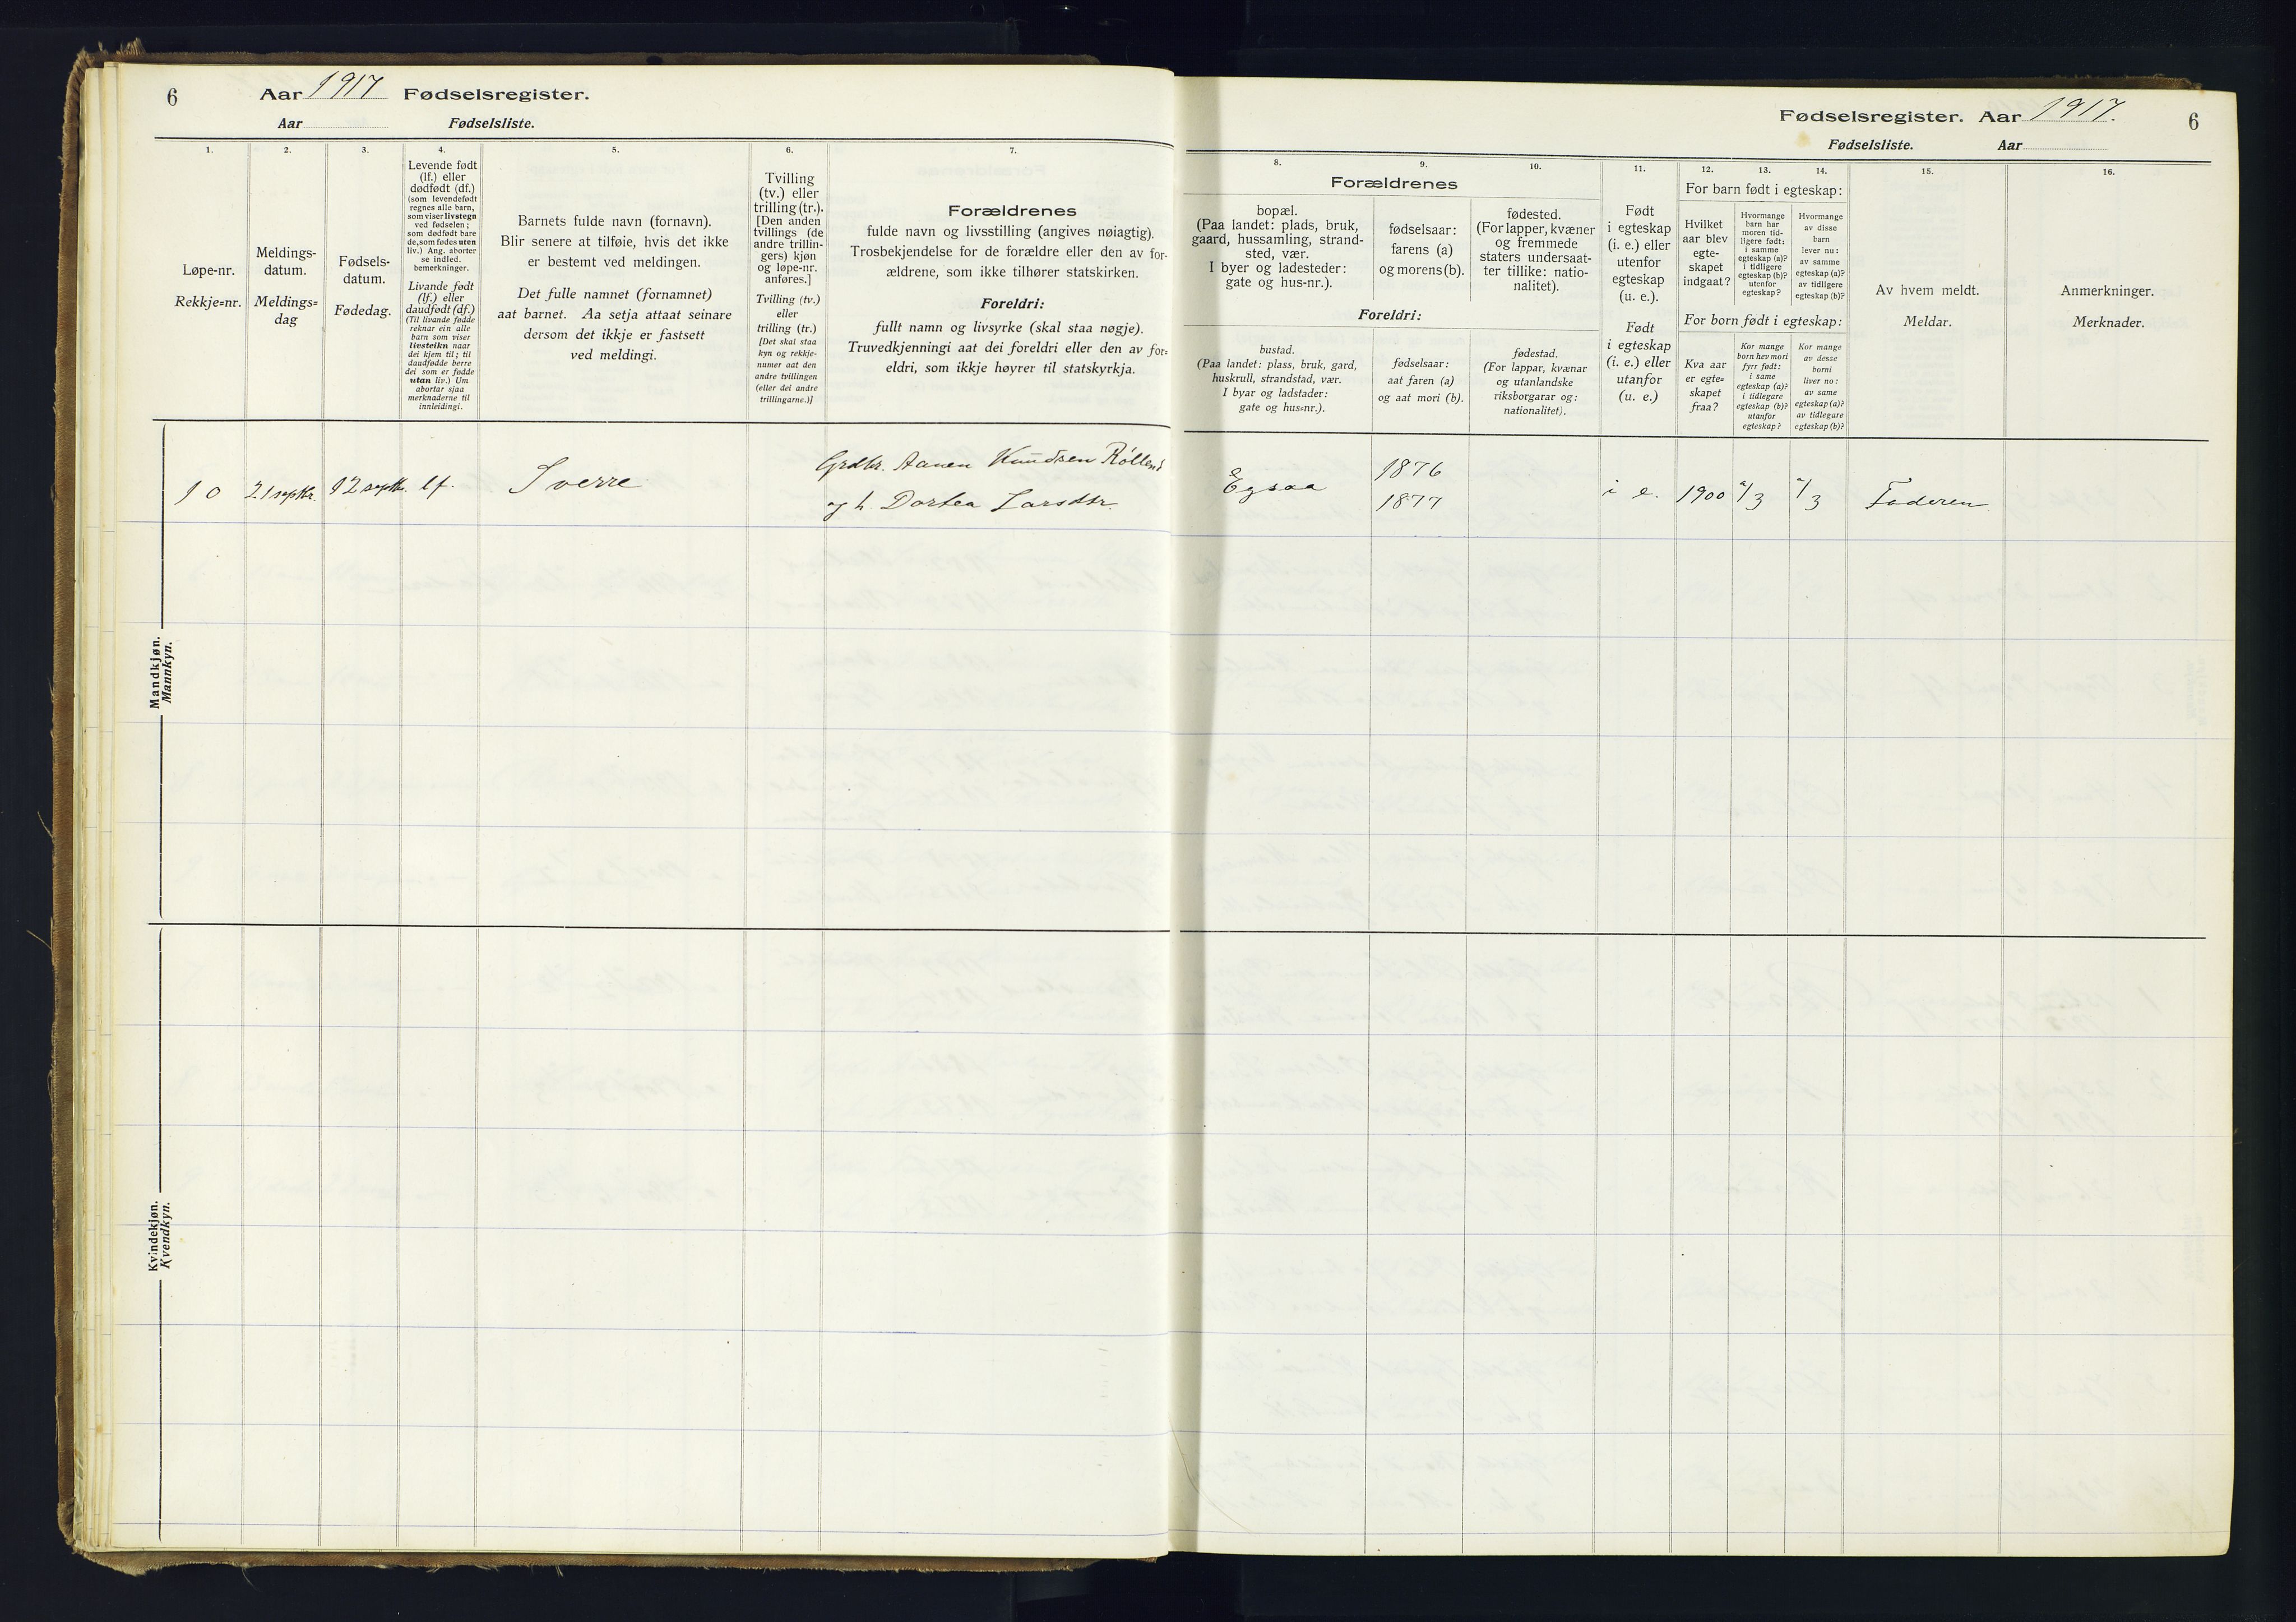 6
Aar 1917 Fødselsregister.
Aar Fødselsliste.
1.
Løpe-nr.
Rekkje=nr.
2.
Meldings-
datum.
Meldings=
dag
3.
Fødsels-
datum.
Fødedag.
4.
Levende født
(lf.) eller
dødfødt (df.)
(som levendefødt
regnes alle barn,
som viser livstegn
ved fødselen;
som dødfødt bare
de, som fødes uten
liv.) Ang. aborter
se indled.
bemerkninger.
Livande født
(lf.) eller
daudfødt (df.)
(Til livande fødde
reknar ein alle
barn som viser
livsteikn naar
dei kjem til; til
daudfødde berre
dei som er fødde
utan liv.) Um
abortar sjaa
merknaderne til
innleidingi.
5.
Barnets fulde navn (fornavn).
Blir senere at tilføie, hvis det ikke
er bestemt ved meldingen.
Det fulle namnet (fornamnet)
aat barnet. Aa setja attaat seinare
dersom det ikkje er fastsett
ved meldingi.
6.
Tvilling
(tv.) eller
trilling (tr.).
[Den anden
tvillings (de
andre trillin-
gers) kjøn
og løpe-nr.
anføres.]
Tvilling (tv.)
eller
trilling (tr.)
[Det skal staa
kyn og rekkje-
numer aat den
andre tvillingen
(eller dei andre
trillingarne.)]
7.
Forældrenes
fulde navn og livsstilling (angives nøiagtig).
Trosbekjendelse for de forældre eller den av for-
ældrene, som ikke tilhører statskirken.
Foreldri:
fullt namn og livsyrke (skal staa nøgje).
Truvedkjenningi aat dei foreldri eller den av for=
eldri, som ikkje høyrer til statskyrkja.
Mandkjøn.
Mannkyn.
10 21 septbr. 12 septbr. lf. Sverre
Grdbr. Aanen Knudsen Røllend
og h. Dortea Larsdtr.
Kvindekjøn.
Kvendkyn.
Fødselsregister. Aar 1917.
6
Fødselsliste. Aar
8.
9.
10.
Forældrenes
bopæl.
(Paa landet: plads, bruk,
gaard, hussamling, strand-
sted, vær.
I byer og ladesteder:
gate og hus-nr.).
fødselsaar:
farens (a)
og morens (b).
fødested.
(For lapper, kvæner
og fremmede
staters undersaat-
ter tillike: natio-
nalitet).
Foreldri:
bustad.
(Paa landet: plass, bruk, gard,
huskrull, strandstad, vær.
I byar og ladstader:
gate og hus=nr.).
fødselsaar:
aat faren (a)
og aat mori (b).
fødestad.
(For lappar, kvænar
og utanlandske
riksborgarar og:
nationalitet).
11.
Født
i egteskap
(i. e.) eller
utenfor
egteskap
(u. e.).
Født
i egteskap
(i. e.) eller
utanfor
(u. e.)
12.
13.
14.
For barn født i egteskap:
Hvilket
aar blev
egte-
skapet
indgaat?
Hvormange
barn har
moren tid-
ligere født:
i samme
egteskap (a)?
i tidligere
egteskap (b)?
utenfor
egteskap?
Hvormange
av disse
barn
lever nu:
av samme
egteskap (a)?
av tidligere
egteskap (b)?
For born født i egteskap:
Kva aar
er egte=
skapet
fraa?
Kor mange
born hev mori
fyrr født:
i same
egteskap (a)?
i tidlegare
egteskap (b)?
utanfor
egteskap?
Kor mange
av desse
borni
liver no:
av same
egteskap (a)?
av tidlegare
egteskap (b)?
15.
Av hvem meldt.
Meldar.
16.
Anmerkninger.
Merknader.
Egsaa
1876
1877
i e. 1900 a/3 a/3 Faderen